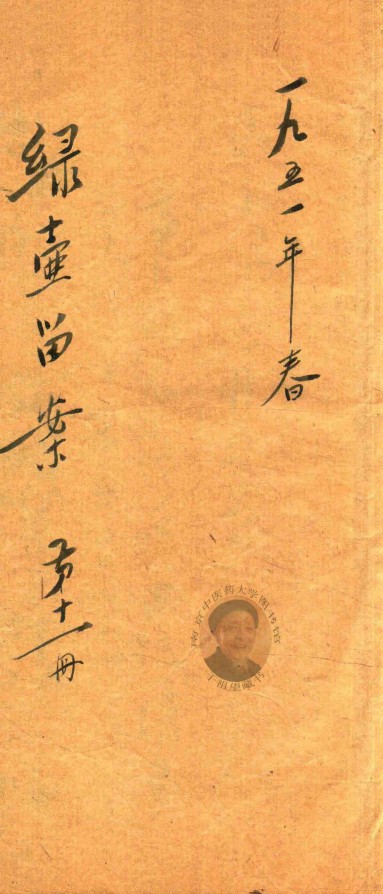 一九五一年春
绿壶留案 第十一册
南京中医药大学图书馆
干祖望藏书